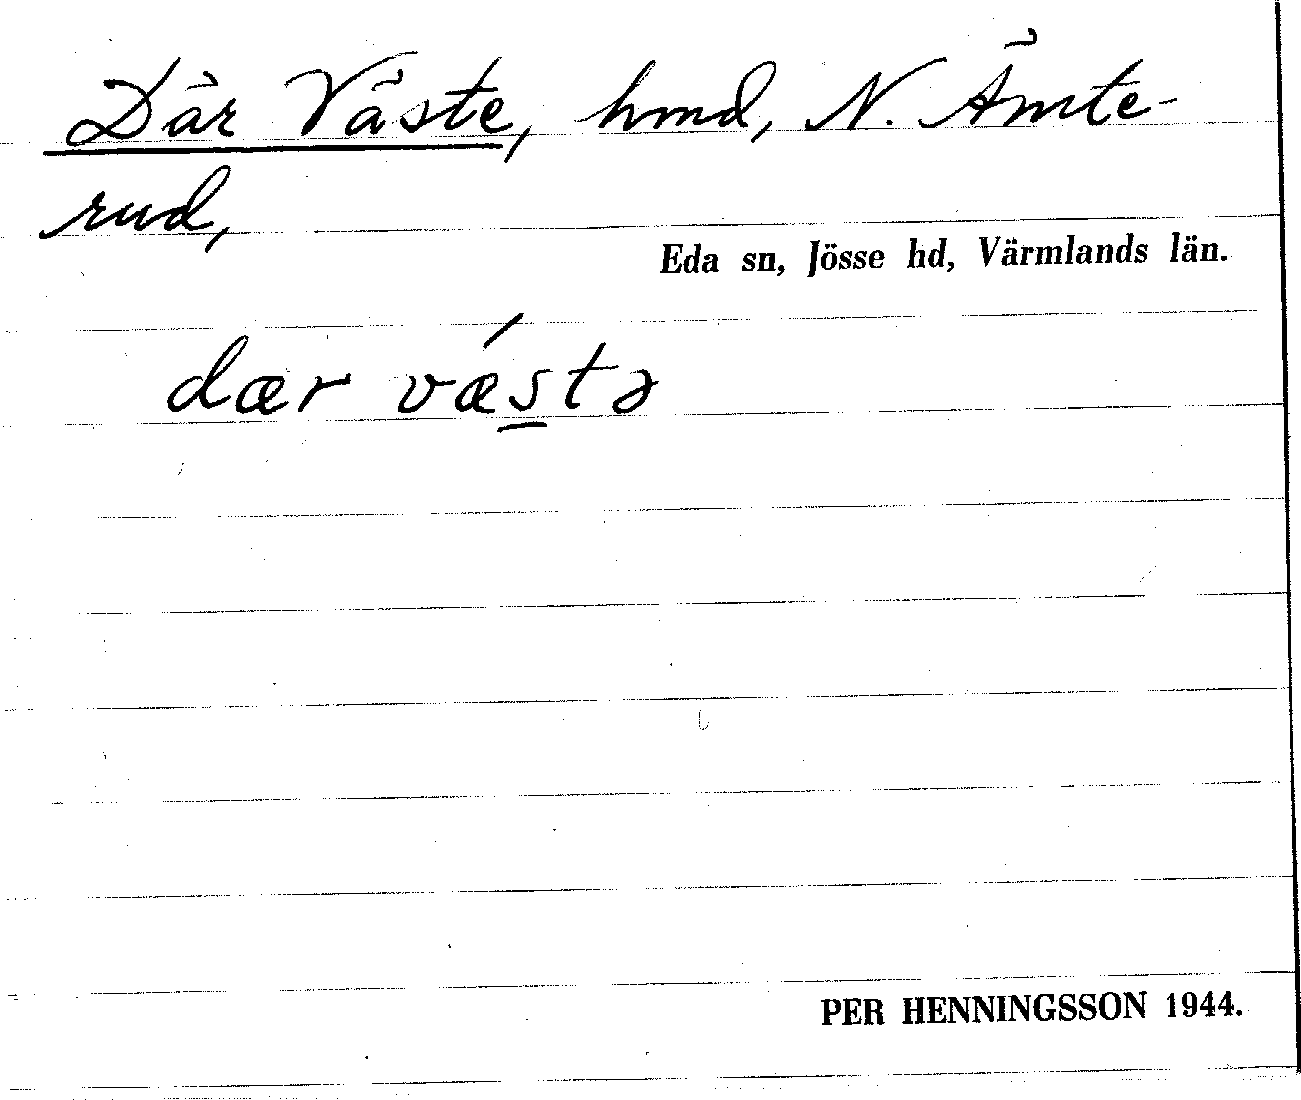 Där Väste, hmd, N. Ämte-
rud,
Eda sn, Jösse hd, Värmlands län.
dær vǽs̲tə
PER HENNINGSSON 1944.